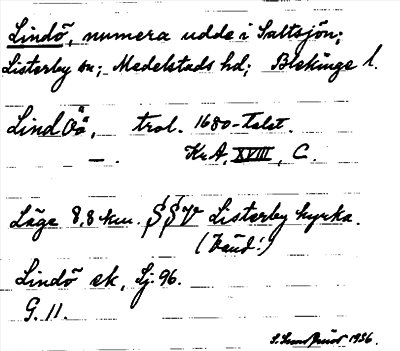 Lindö, numera udde i Saltsjön;
Listerby sn; Medelstads hd; Blekinge l.
Lindöö, trol. 1680-talet.
— . Kr.A, XVIII, C.
Läge 8,8 km. SSV Listerby kyrka.
Lindö ek, Lj. 96.
G. 11.
1936.